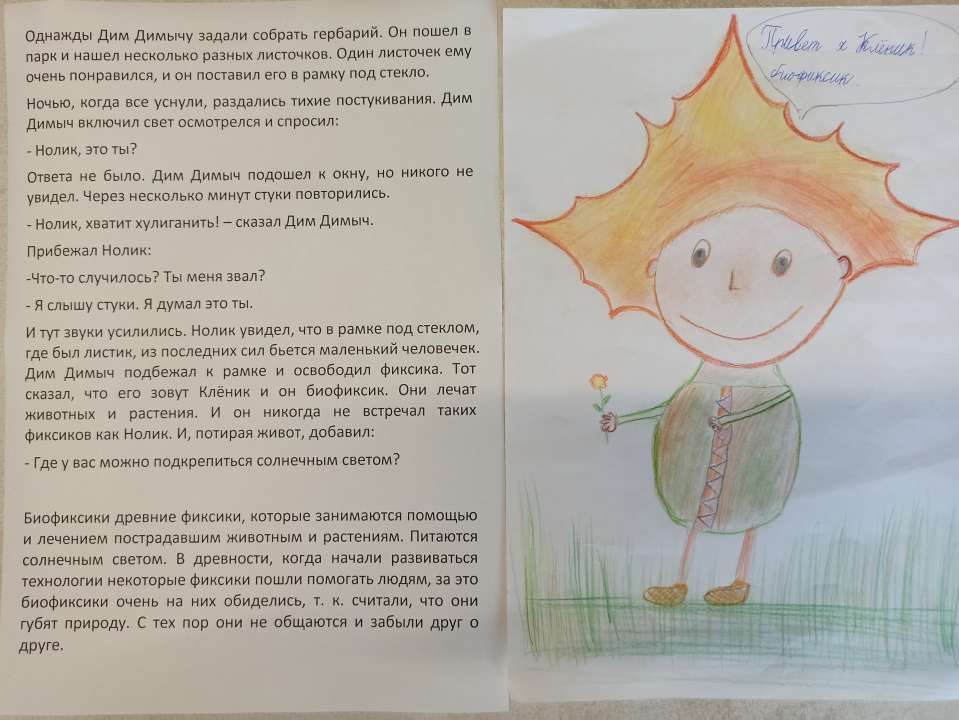 Однажды Дим Димычу задали собрать гербарий. Он пошел в
парк и нашел несколько разных листочков. Один листочек ему
очень понравился, и он поставил его в рамку под стекло.
Ночью, когда все уснули, раздались тихие постукивания. Дим
Димыч включил свет осмотрелся и спросил:
- Нолик, это ты?
Ответа не было. Дим Димыч подошел к окну, но никого не
увидел. Через несколько минут стуки повторились.
- Нолик, хватит хулиганить! – сказал Дим Димыч.
Прибежал Нолик:
-Что-то случилось? Ты меня звал?
- Я слышу стуки. Я думал это ты.
И тут звуки усилились. Нолик увидел, что в рамке под стеклом,
где был листик, из последних сил бьется маленький человечек.
Дим Димыч подбежал к рамке и освободил фиксика. Тот
сказал, что его зовут Клёник и он биофиксик. Они лечат
животных и растения. И он никогда не встречал таких
фиксиков как Нолик. И, потирая живот, добавил:
- Где у вас можно подкрепиться солнечным светом?
Биофиксики древние фиксики, которые занимаются помощью
и лечением пострадавшим животным и растениям. Питаются
солнечным светом. В древности, когда начали развиваться
технологии некоторые фиксики пошли помогать людям, за это
биофиксики очень на них обиделись, т. к. считали, что они
губят природу. С тех пор они не общаются и забыли друг о
друге.
Привет я Клёник!
биофиксик.